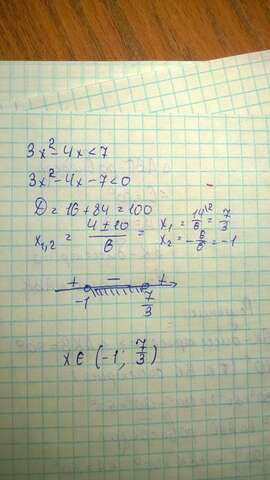 3x² - 4x < 7
3x² - 4x - 7 < 0
D = 16 + 84 = 100
x₁,₂ = (4 ± 10)/6 = x₁ = 14/6 ^(/2) = 7/3
x₂ = -6/6 = -1
+ - +
-1 7/3
x ∈ (-1; 7/3)